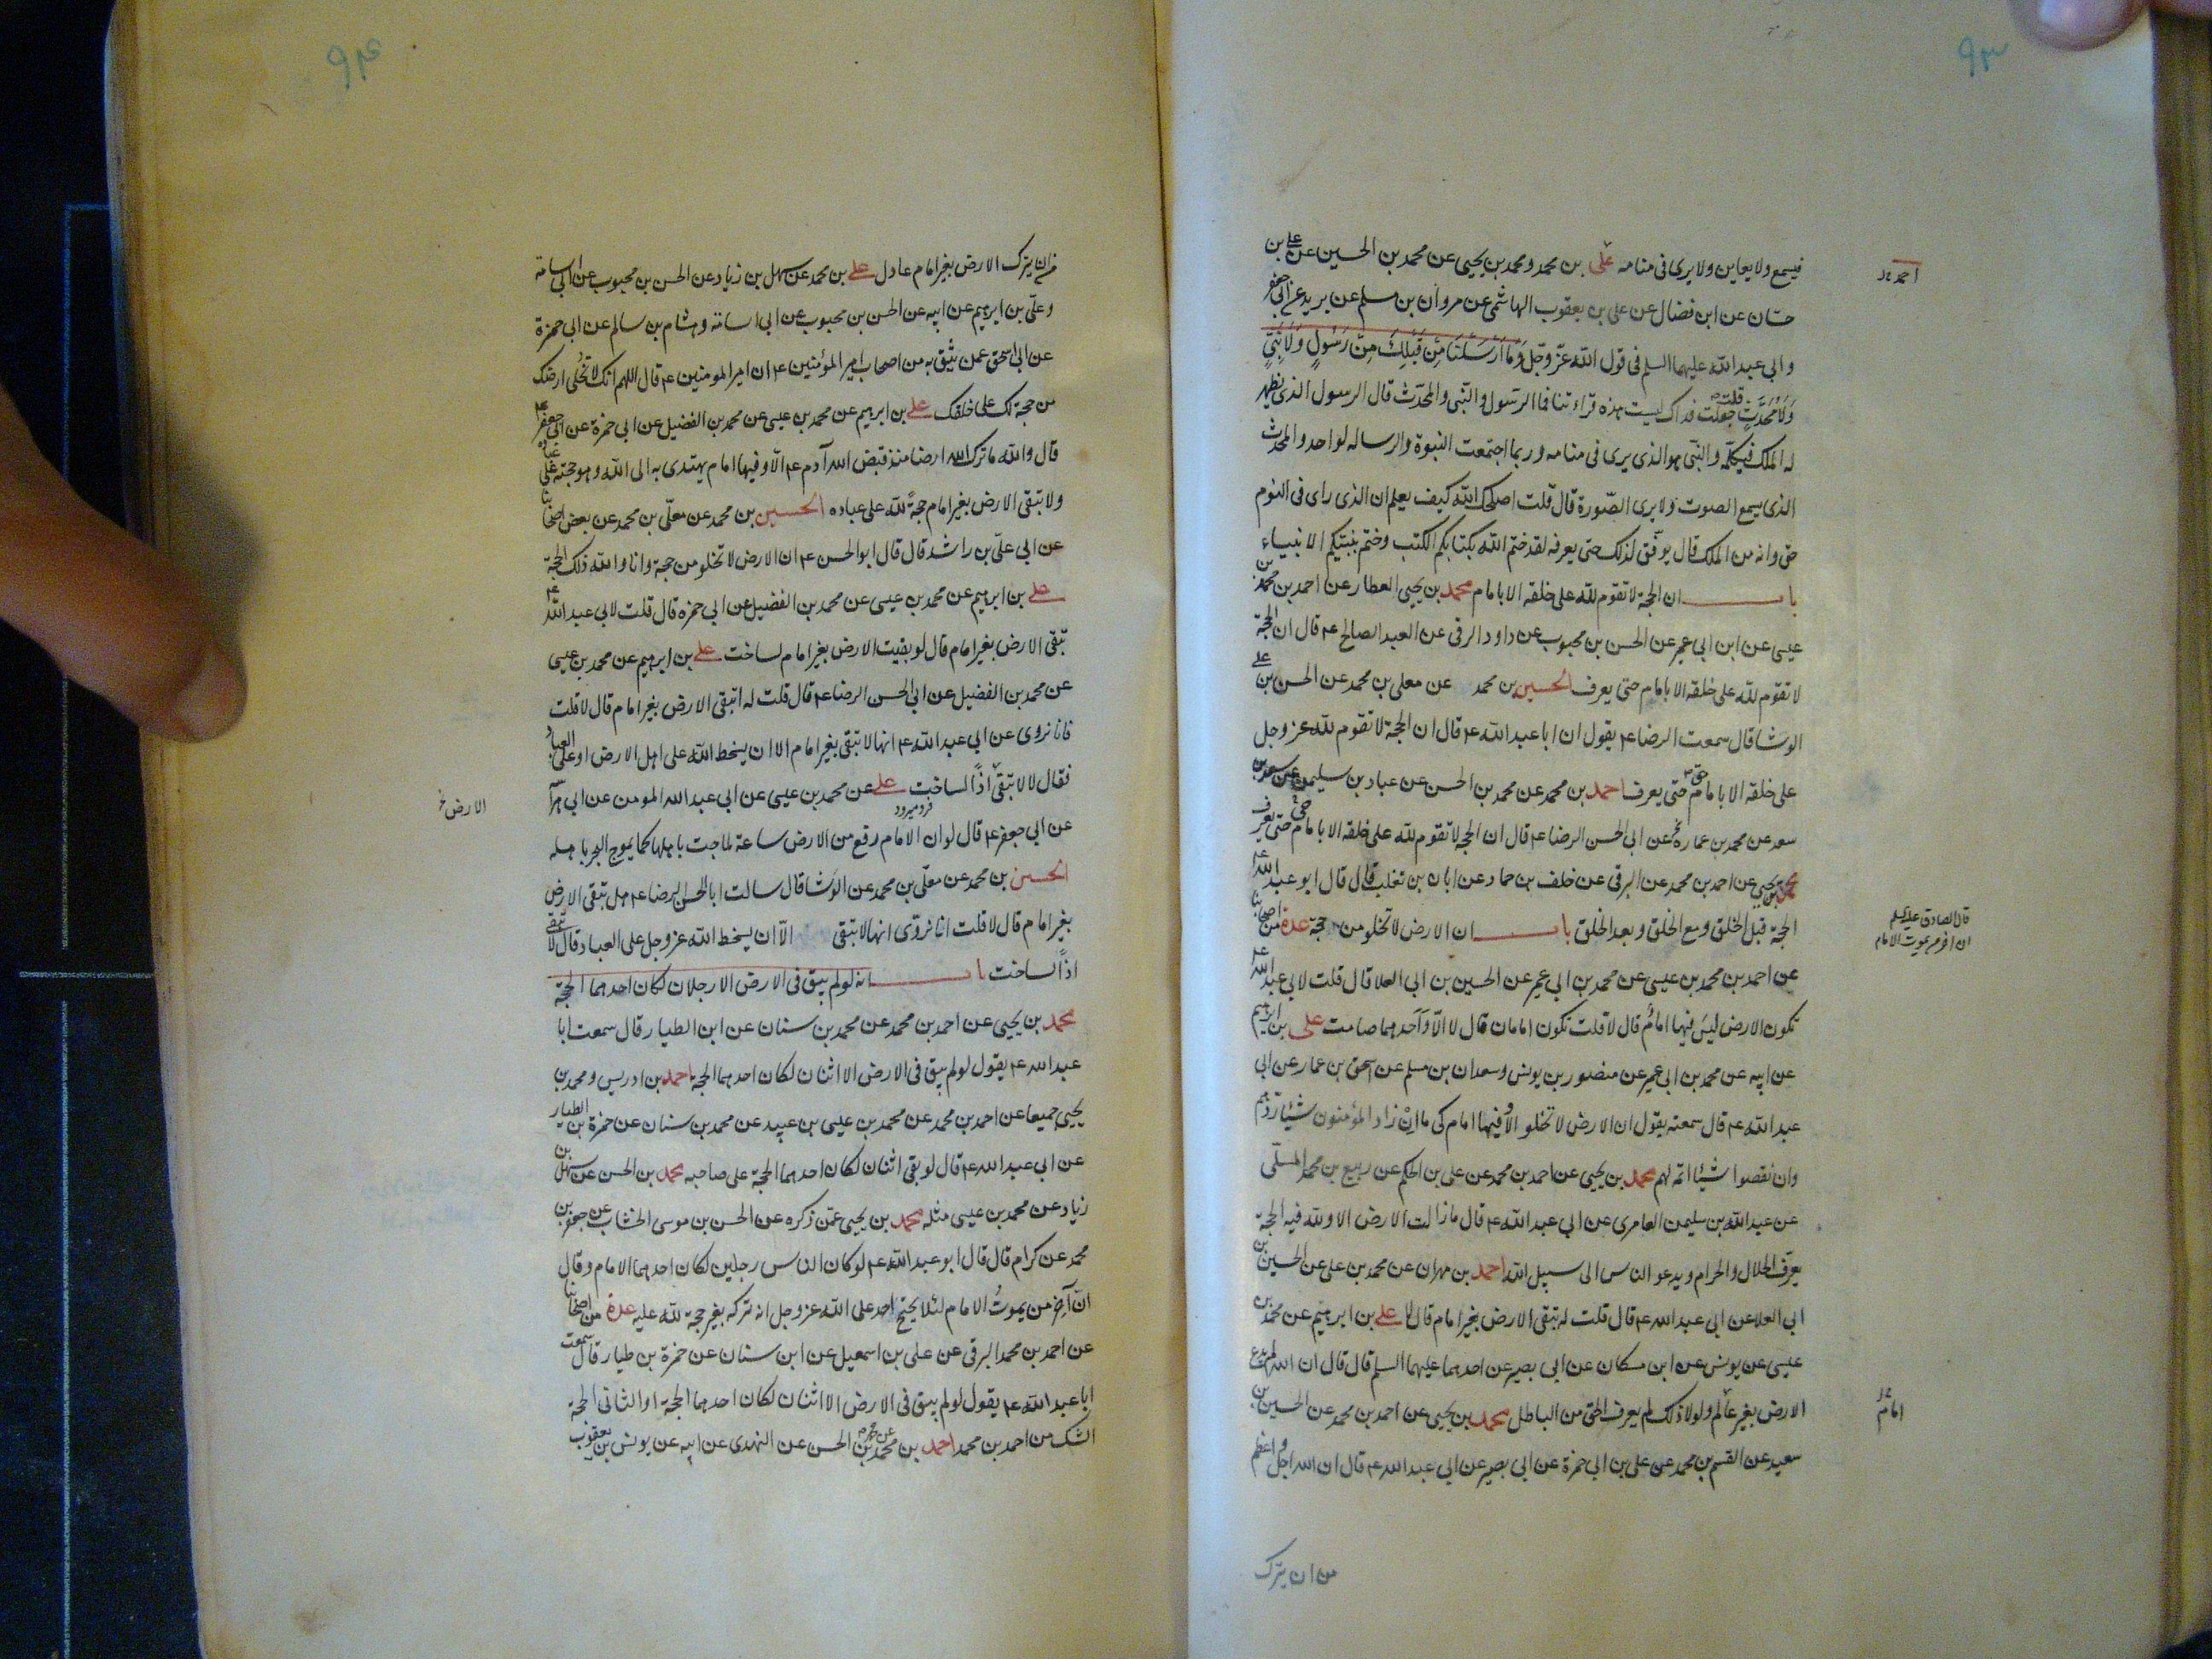 ۹۳
فيسمع ولا يعاين ولا يرى فى منامه على بن محمد ومحمد بن يحيى عن محمد بن الحسين عن على بن
حسّان عن ابن فضال عن على بن يعقوب الهاشمى عن مروان بن مسلم عن بريد عن ابى جعفر
و ابى عبد الله عليهما السلم فى قول الله عزّ وجلّ وَمَا اَرْسَلْنَا مِنْ قَبْلِكَ مِنْ رَسُولٍ وَلَا نَبِيٍّ
وَلَا مُحَدَّثٍ قلت جعلت فداك ليست هذه قراءتنا فما الرسول والنّبى والمحدّث قال الرسول الذى يظهر
له الملك فيكلّمه والنّبى هو الذى يرى فى منامه وربما اجتمعت النبوة والرساله لواحد والمحدث
الذى يسمع الصوت ولا يرى الصّورة قال قلت اصلحك الله كيف يعلم ان الذى راى فى النوم
حق وانه من الملك قال يوفّق لذلك حتى يعرفه لقد ختم الله بكتابكم الكتب وختم بنبيّكم الانبياء
باب ان الحجة لا تقوم لله على خلقه الا بامام محمد بن يحيى العطار عن احمد بن محمد بن
عيسى عن ابن ابى عمير عن الحسن بن محبوب عن داود الرقى عن العبد الصالح ع قال ان الحجة
لا تقوم لله على خلقه الا بامام حتى يعرف الحسين بن محمد عن معلى بن محمد عن الحسن بن على
الوشّا قال سمعت الرضا ع يقول ان ابا عبد الله ع قال ان الحجة لا تقوم لله عز وجل
على خلقه الا بامام حتى يعرف احمد بن محمد عن محمد بن الحسن عن عباد بن سليمن عن سعد بن
سعد عن محمد بن عماره عن ابى الحسن الرضا ع قال ان الحجة لا تقوم لله على خلقه الا بامام حتى يعرف
محمد بن يحيى عن احمد بن محمد عن البرقى عن خلف بن حماد عن ابان بن تغلب قال قال ابو عبد الله ع
الحجة قبل الخلق ومع الخلق وبعد الخلق باب ان الارض لا تخلو من حجة عدة من اصحابنا
عن احمد بن محمد بن عيسى عن محمد بن ابى عمير عن الحسين بن ابى العلا قال قلت لابى عبد الله ع
تكون الارض ليسَ فيها امامٌ قال لا قلت تكون امامان قال لا الّا وَاَحدهما صامت على بن ابرهيم
عن ابيه عن محمد بن ابى عمير عن منصور بن يونس وسعدان بن مسلم عن اسحق بن عمار عن ابى
عبد الله ع قال سمعته يقول ان الارض لا تخلو الا وفيها امام كى ما اِنْ زاد المؤمنون شيئا ردّهم
وان نقصوا شيئا اتمه لهم محمد بن يحيى عن احمد بن محمد عن على بن الحكم عن ربيع بن محمد المسلّى
عن عبد الله بن سليمن العامرى عن ابى عبد الله ع قال ما زالت الارض الا ولله فيه الحجة
يعرّف الحلال والحرام ويدعو الناس الى سبيل الله احمد بن مهران عن محمد بن على عن الحسين بن
ابى العلا عن ابى عبد الله ع قال قلت له تبقى الارض بغير امام قال لا على بن ابرهيم عن محمد بن
عيسى عن يونس عن ابن مسكان عن ابى بصير عن احدهما عليهما السلم قال قال ان الله لم يدع
الارض بغير عالم ولولا ذلك لم يعرف الحق من الباطل محمد بن يحيى عن احمد بن محمد عن الحسين بن
سعيد عن القسم بن محمد عن على بن ابى حمزة عن ابى بصير عن ابى عبد الله ع قال ان الله اجل واعظم
من ان يترك
احمد
قال الصادق عليه السلم
ان اخر من يموت الامام
امام
۹۴
من ان يترك الارض بغير امام عادل على بن محمد عن سهل بن زياد عن الحسن بن محبوب عن ابى اسامة
وعلّى بن ابرهيم عن ابيه عن الحسن بن محبوب عن ابى اسامة وهشام بن سالم عن ابى حمزة
عن ابى اسحق عمن يثق به من اصحاب امير المؤمنين ع ان امير المومنين ع قال اللهم انك لا تخلى ارضك
من حجة لك على خلقك على بن ابرهيم عن محمد بن عيسى عن محمد بن الفضيل عن ابى حمزة عن ابى جعفر ع
قال والله ما ترك الله ارضا منذ قبض الله آدم ع الّا وفيها امام يهتدى به الى الله وهو حجته على عباده
ولا تبقى الارض بغير امام حجةً لله على عباده الحسين بن محمد عن معلّى بن محمد عن بعض اصحابنا
عن ابى علىّ بن راشد قال قال ابو الحسن ع ان الارض لا تخلو من حجة وانا والله ذلك الحجة
على بن ابرهيم عن محمد بن عيسى عن محمد بن الفضيل عن ابى حمزه قال قلت لابى عبد الله ع
تبقى الارض بغير امام قال لو بقيت الارض بغير امام لساخت على بن ابرهيم عن محمد بن عيسى
عن محمد بن الفضيل عن ابى الحسن الرضا ع قال قلت له اتبقى الارض بغير امام قال لا قلت
فانا نروى عن ابى عبد الله ع انها لا تبقى بغير امام الا ان يسخط الله على اهل الارض او على العباد
فقال لا لا تبقى اذاً لساخت على عن محمد بن عيسى عن ابى عبد الله المومن عن ابى هراسة
فرو ميرود
عن ابى جعفر ع قال لو ان الامام رفع من الارض ساعة لماجت باهلها كما يموج البحر باهله
الحسين بن محمد عن معلّى بن محمد عن الوشا قال سالت ابا الحسن الرضا ع هل تبقى الارض
بغير امام قال لا قلت انا نروّى انها لا تبقى الّا ان يسخط الله عز وجل على العباد قال لا تبقى
اذاً لساخت باب انه لو لم يبق فى الارض الا رجلان لكان احدهما الحجة
محمد بن يحيى عن احمد بن محمد عن محمد بن سنان عن ابن الطيار قال سمعت ابا
عبد الله ع يقول لو لم يبق فى الارض الا اثنان لكان احدهما الحجة احمد بن ادريس ومحمد بن
يحيى جميعا عن احمد بن محمد عن محمد بن عيسى بن عبيد عن محمد بن سنان عن حمزة بن الطيار
عن ابى عبد الله ع قال لو بقى اثنان لكان احدهما الحجة على صاحبه محمد بن الحسن عن سهل بن
زياد عن محمد بن عيسى مثله محمد بن يحيى عمّن ذكره عن الحسن بن موسى الخشاب عن جعفر بن
محمد عن كرام قال قال ابو عبد الله ع لو كان الناس رجلين لكان احدهما الامام وقال
انّ آخِر من يموتُ الامام لئلا يحتج احد على الله عز وجل انه تركه بغير حجة لله عليه عدة من اصحابنا
عن احمد بن محمد البرقى عن على بن اسمعيل عن ابن سنان عن حمزة بن طيار قال سمعت
ابا عبد الله ع يقول لو لم يبق فى الارض الا اثنان لكان احدهما الحجة او الثانى الحجة
الشك من احمد بن محمد احمد بن محمد عن محمد بن الحسن عن النهدى عن ابيه عن يونس بن يعقوب
الارض خ